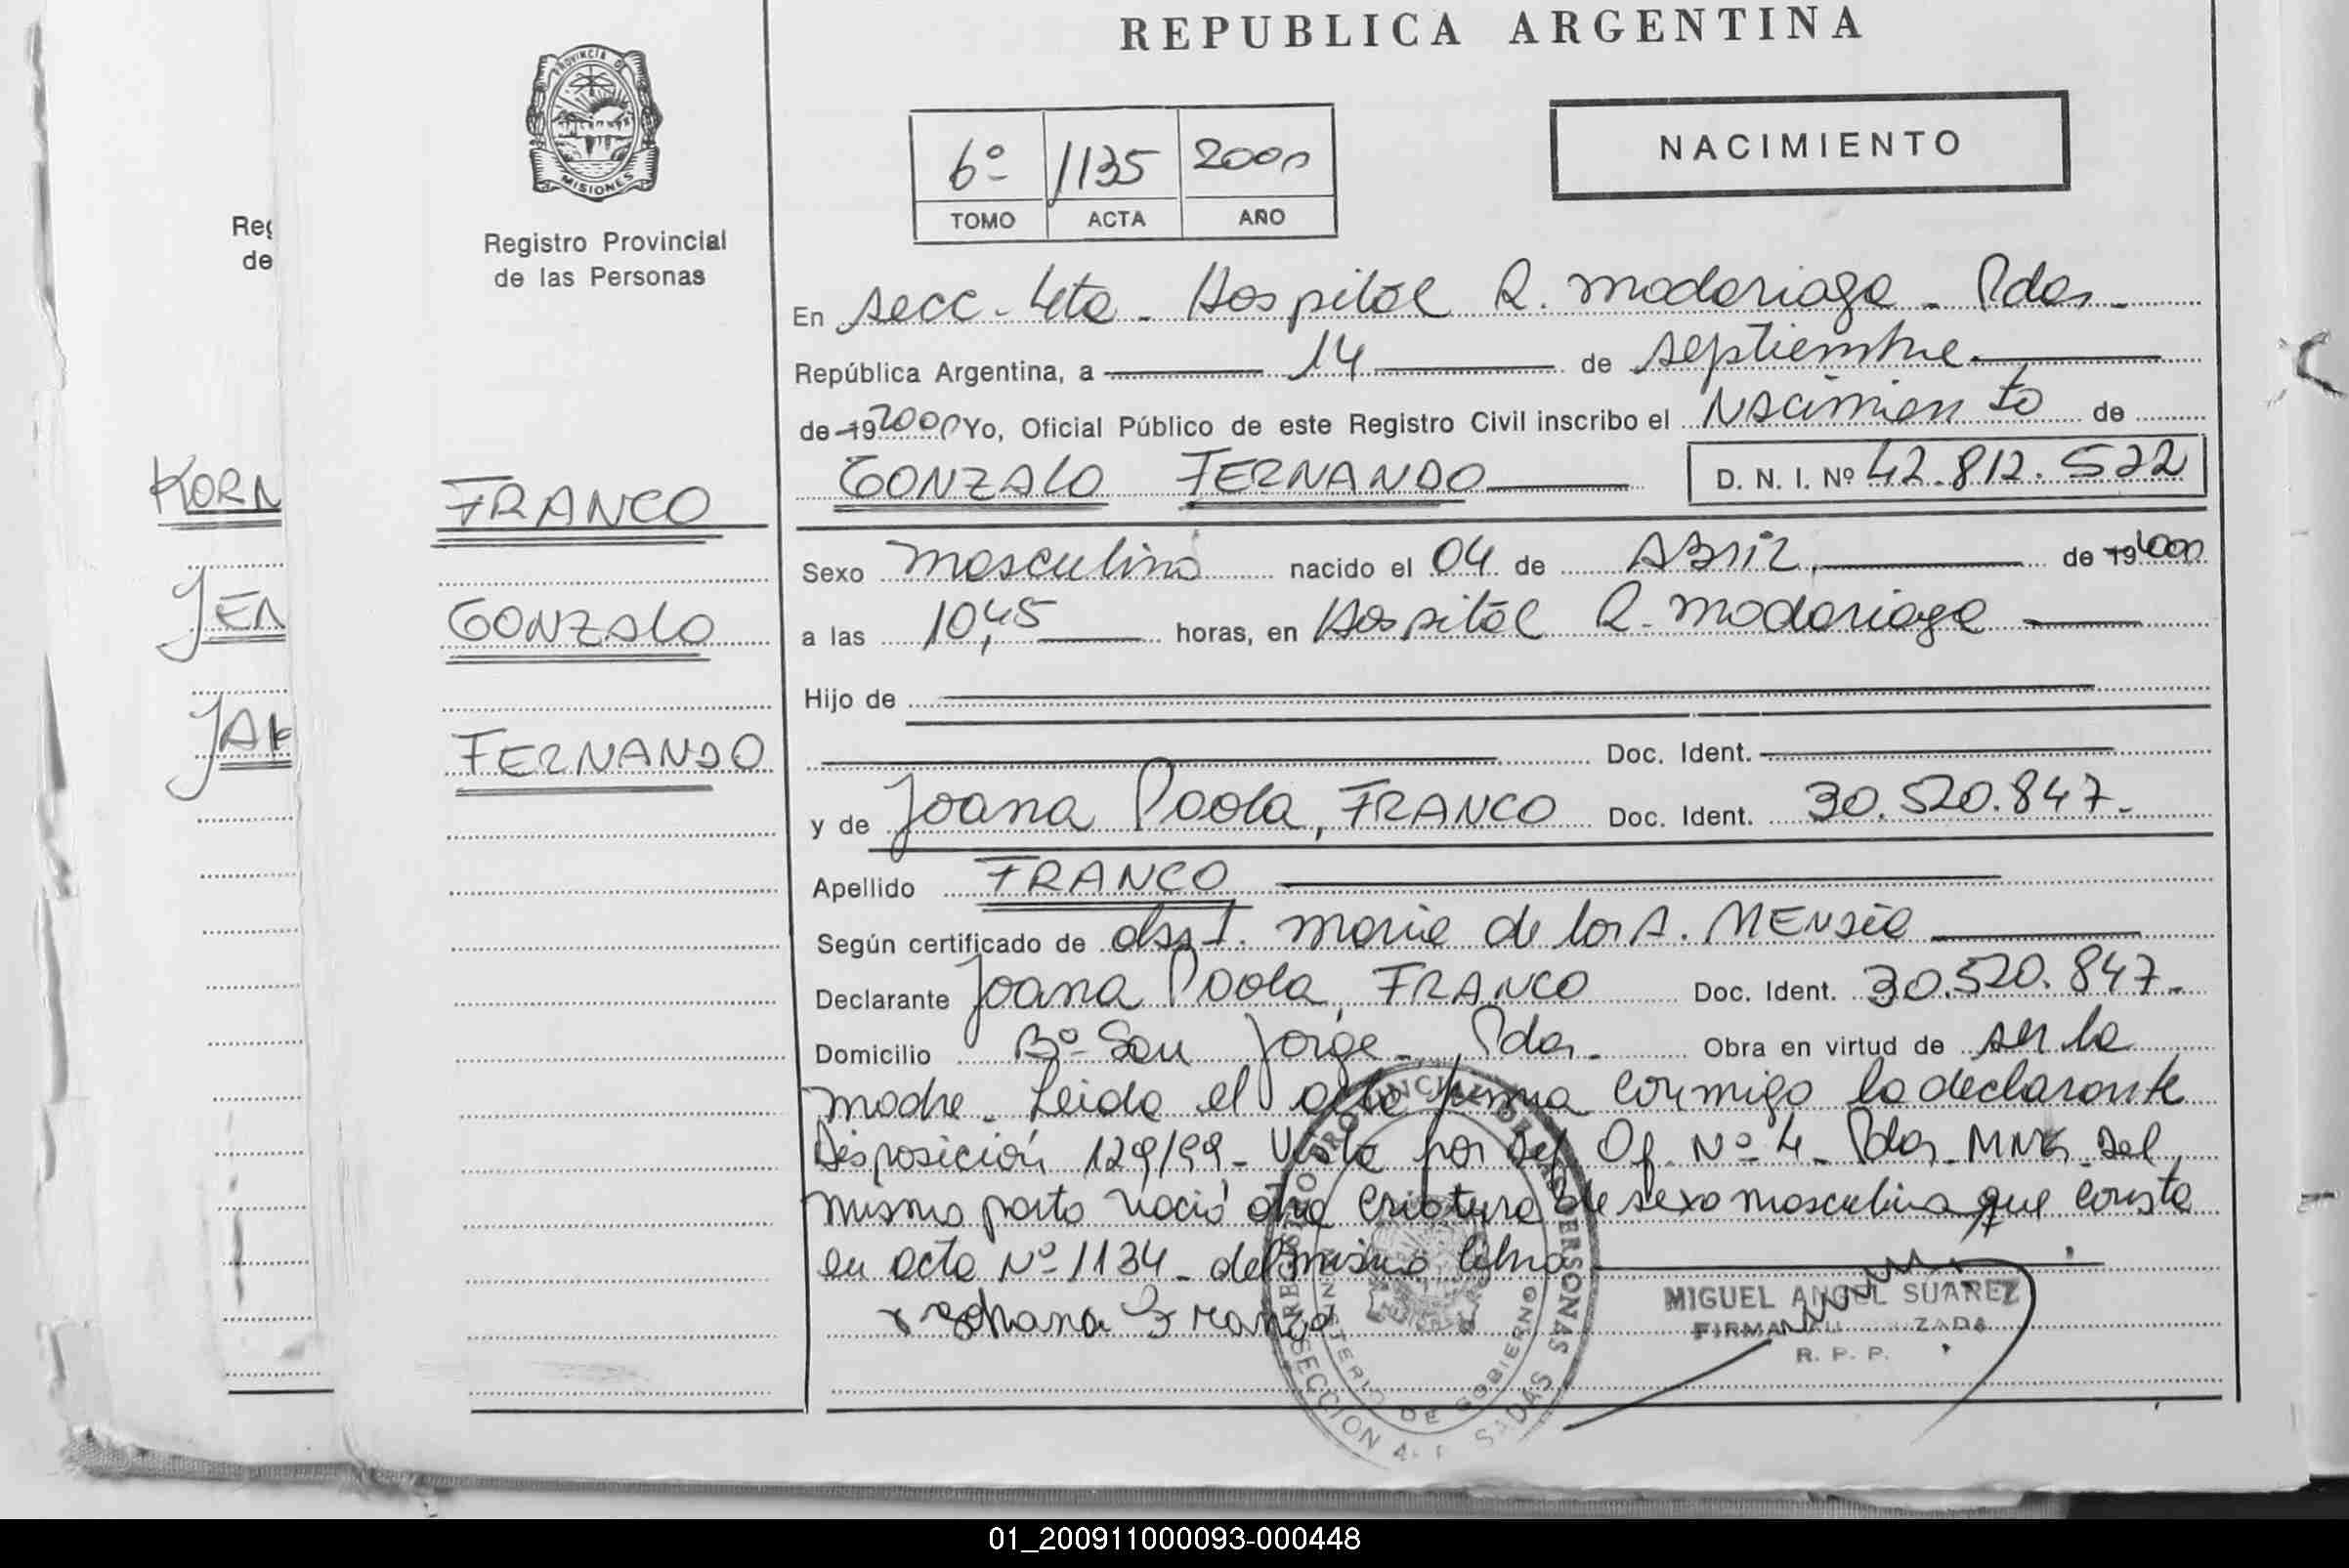 REPUBLICA ARGENTINA
PROVINCIA DE
MISIONES
Registro Provincial
de las Personas
6º 1135 2000
TOMO ACTA AÑO
NACIMIENTO
Reg
de
KORN
JEN
FRANCO
GONZALO
FERNANDO
En secc. 4ta - Hospital R. Madariaga - Pdas -
República Argentina, a 14 de septiembre
de 19 2000 Yo, Oficial Público de este Registro Civil inscribo el Nacimiento de
GONZALO FERNANDO D. N. I. Nº 42.812.522
Sexo masculino nacido el 04 de Abril, de 19 2000
a las 10,45 horas, en Hospital R. Madariaga
Hijo de
Doc. Ident.
y de Joana Paola, FRANCO Doc. Ident. 30.520.847.-
Apellido FRANCO
Según certificado de obst. Maria de los A. MENDIE
Declarante Joana Paola, FRANCO Doc. Ident. 30.520.847.-
Domicilio Bº San Jorge - Pdas. - Obra en virtud de ser la
madre - Leida el acta firma conmigo la declarante
Disposición 129/99 - Vista por Def. Of. Nº 4 - Pdas. Mnes. Del
mismo parto nació otra criatura de sexo masculino que consta
en acta Nº 1134 - del mismo libro
x Johana Franco
MIGUEL ANGEL SUAREZ
R. P. P.
REGISTRO PROVINCIAL DE LAS PERSONAS
MINISTERIO DE GOBIERNO
SECCION 4
01_200911000093-000448